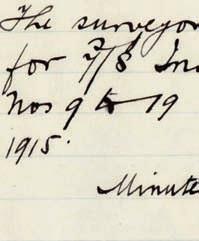 The surveyor
for
Nos 9 to 19
1915.
Minute